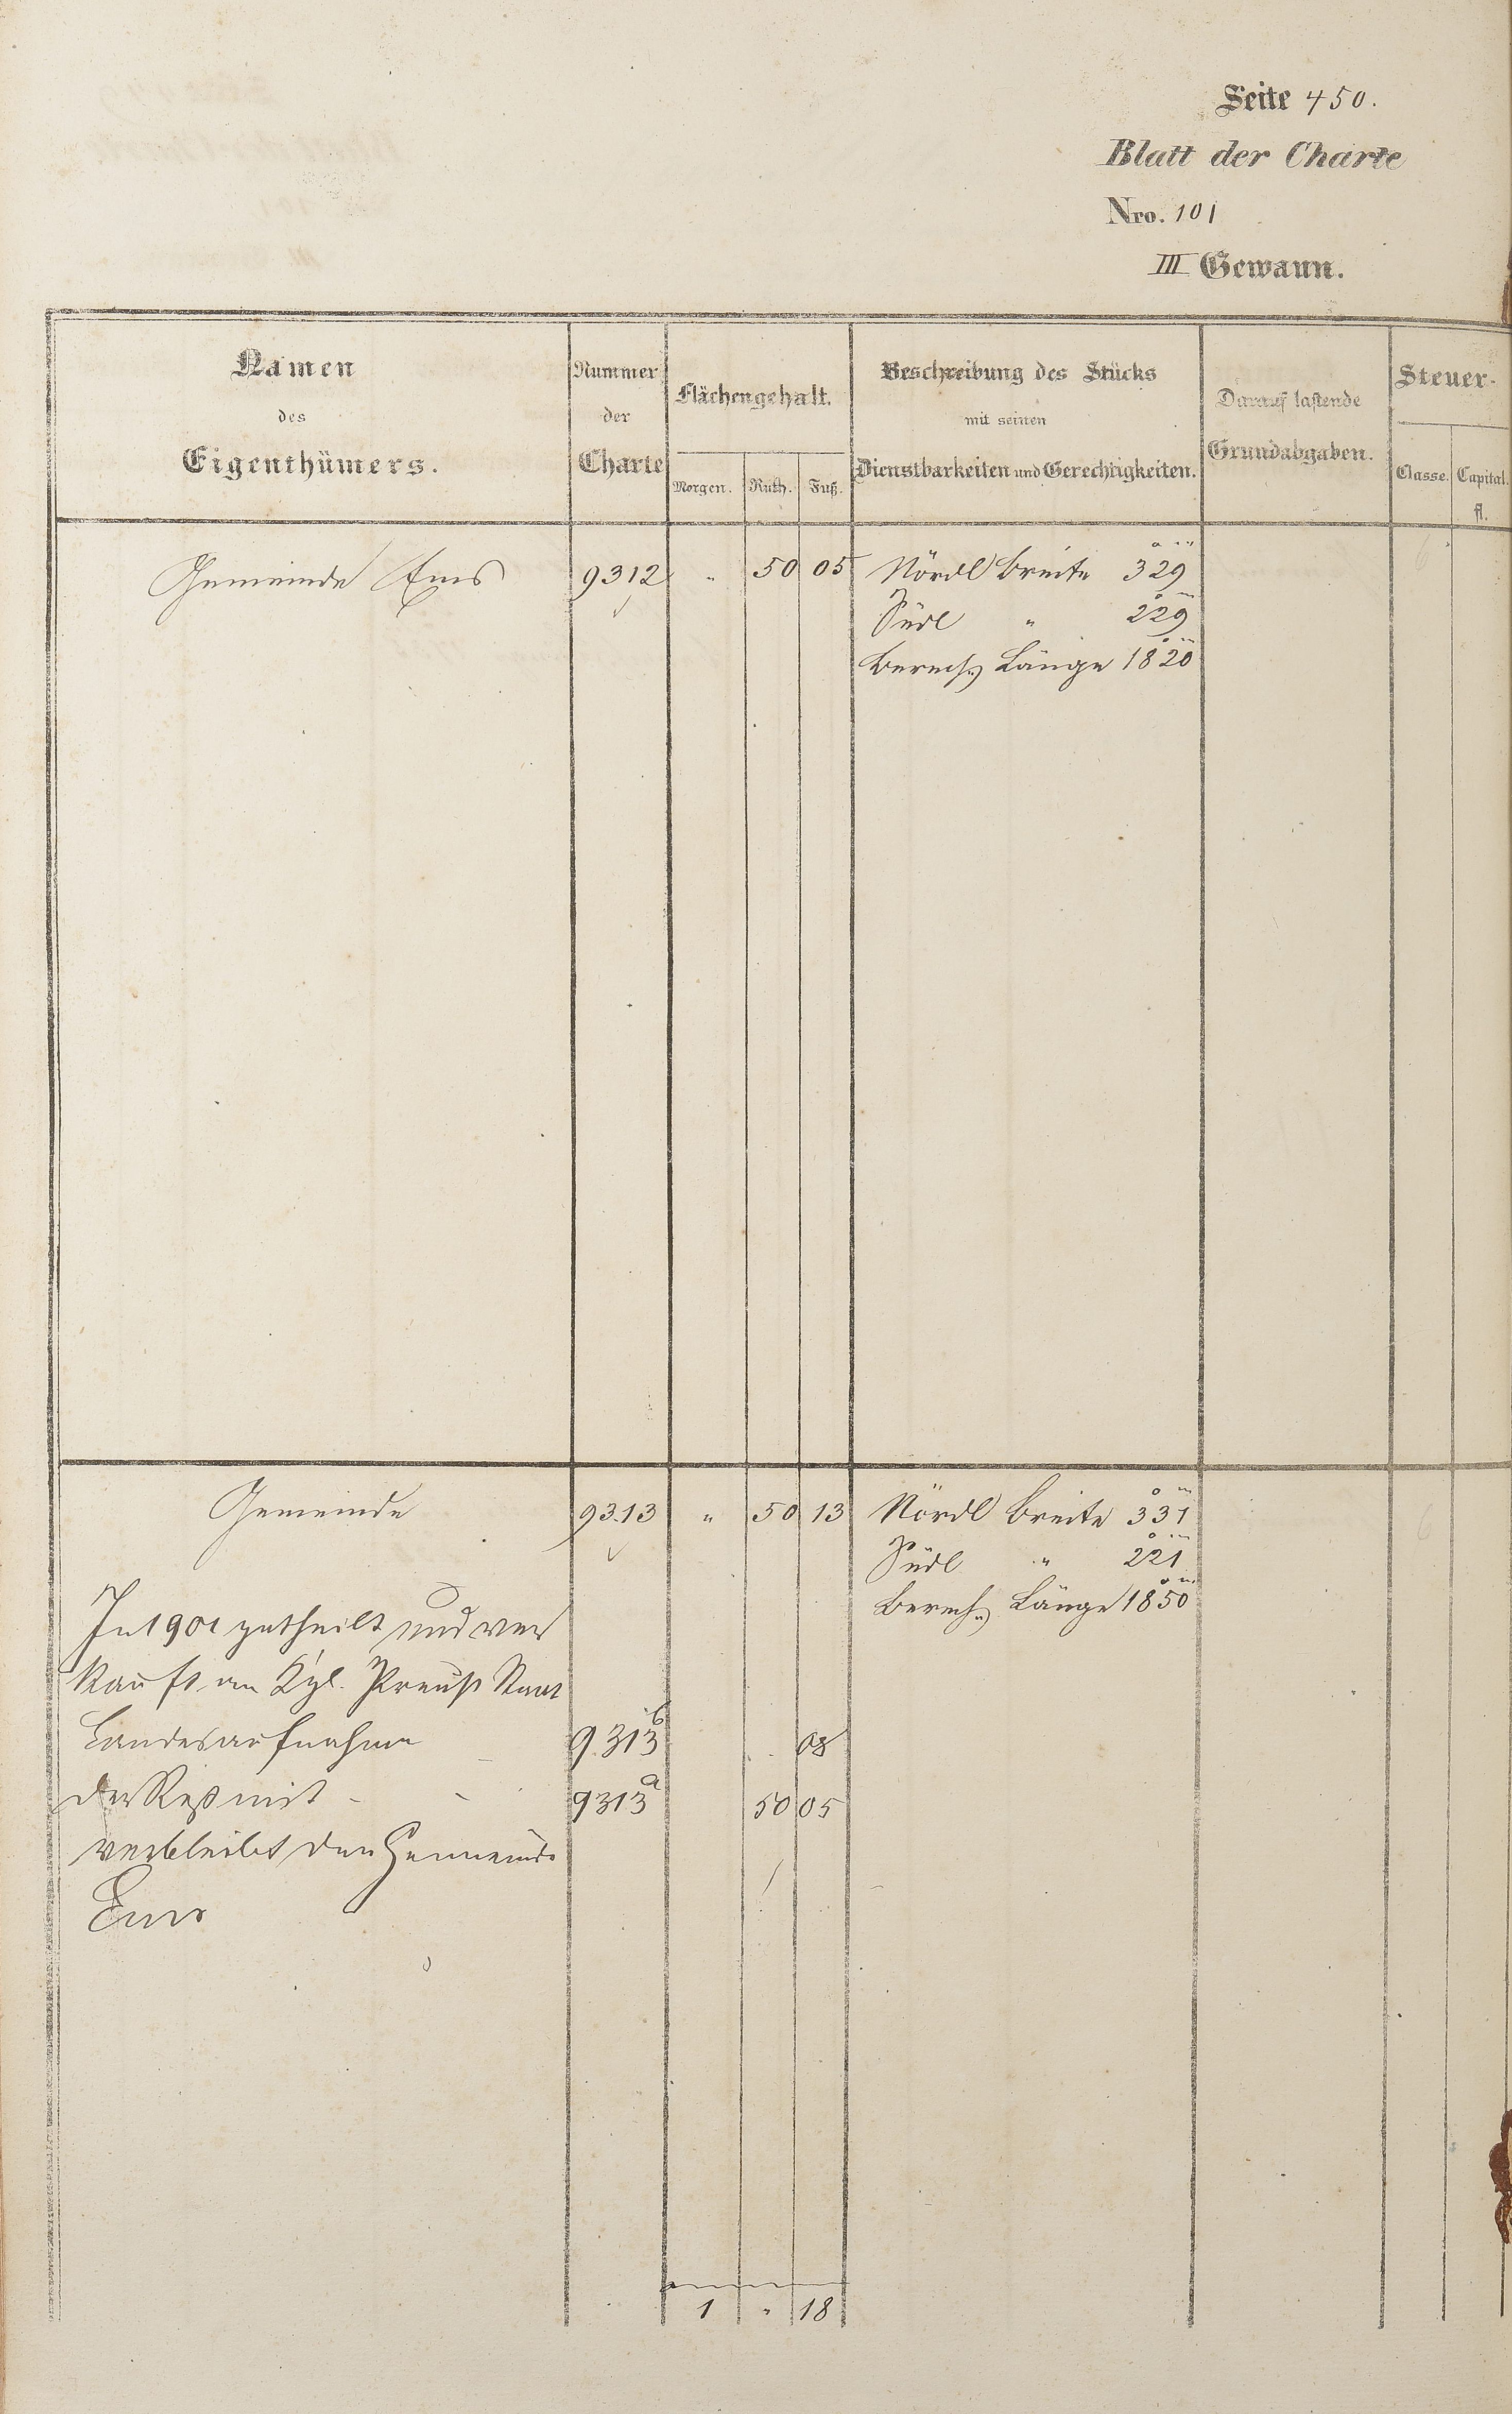 Seite 450.
Blatt der Charte
Nro. 101
III Gewann.
Namen des Eigenthümers.
Nummer der Charte
Flächengehalt.
Morgen. Ruth. Fuß.
Beschreibung des Stücks mit seinen Dienstbarkeiten und Gerechtigkeiten.
Darauf lastende Grundabgaben.
Steuer-
Classe. Capital. fl.
Gemeinde Ems 9312 " 50 05 Nördl Breite 329
Südl " 229
Berech. Länge 1820
Gemeinde 9313 " 50 13 Nördl Breite 331
Südl " 221
Berech. Länge 1850
In 1901 getheilt und ver
kauft an Kgl. Preuß Staat
Landesaufnahme 9313b 08
der Rest mit 9313a 50 05
verbleibt der Gemeinde
Ems
1 " 18